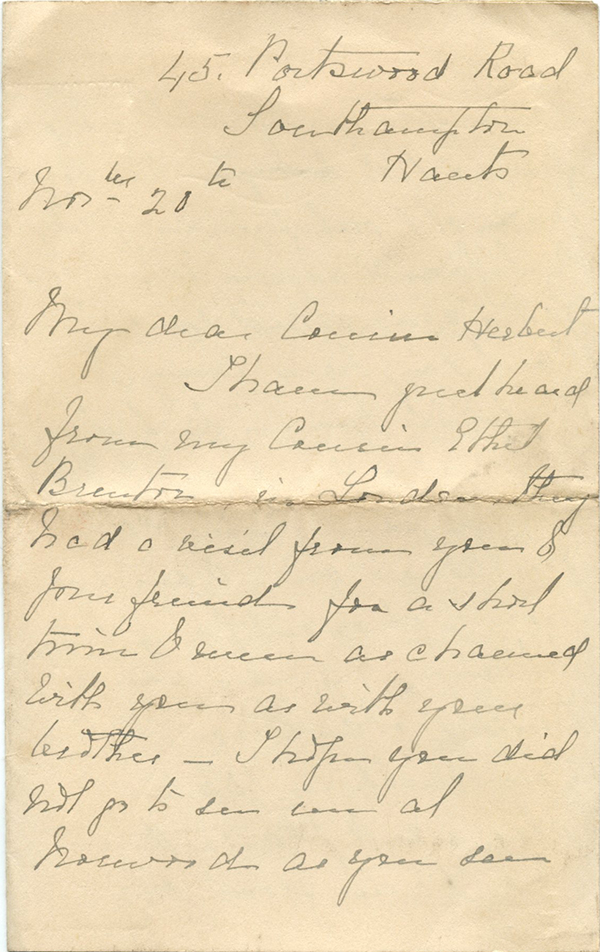 45. Portswood Road
Southampton
Hants
Novber 20th
My dear Cousin Herbert
I have just heard
from my Cousin Ethel
Brenton, in London they
had a visit from you &
your friend for a short
time & were as charmed
with you as with your
brother — I hope you did
not go to see me at
Norwood as you saw